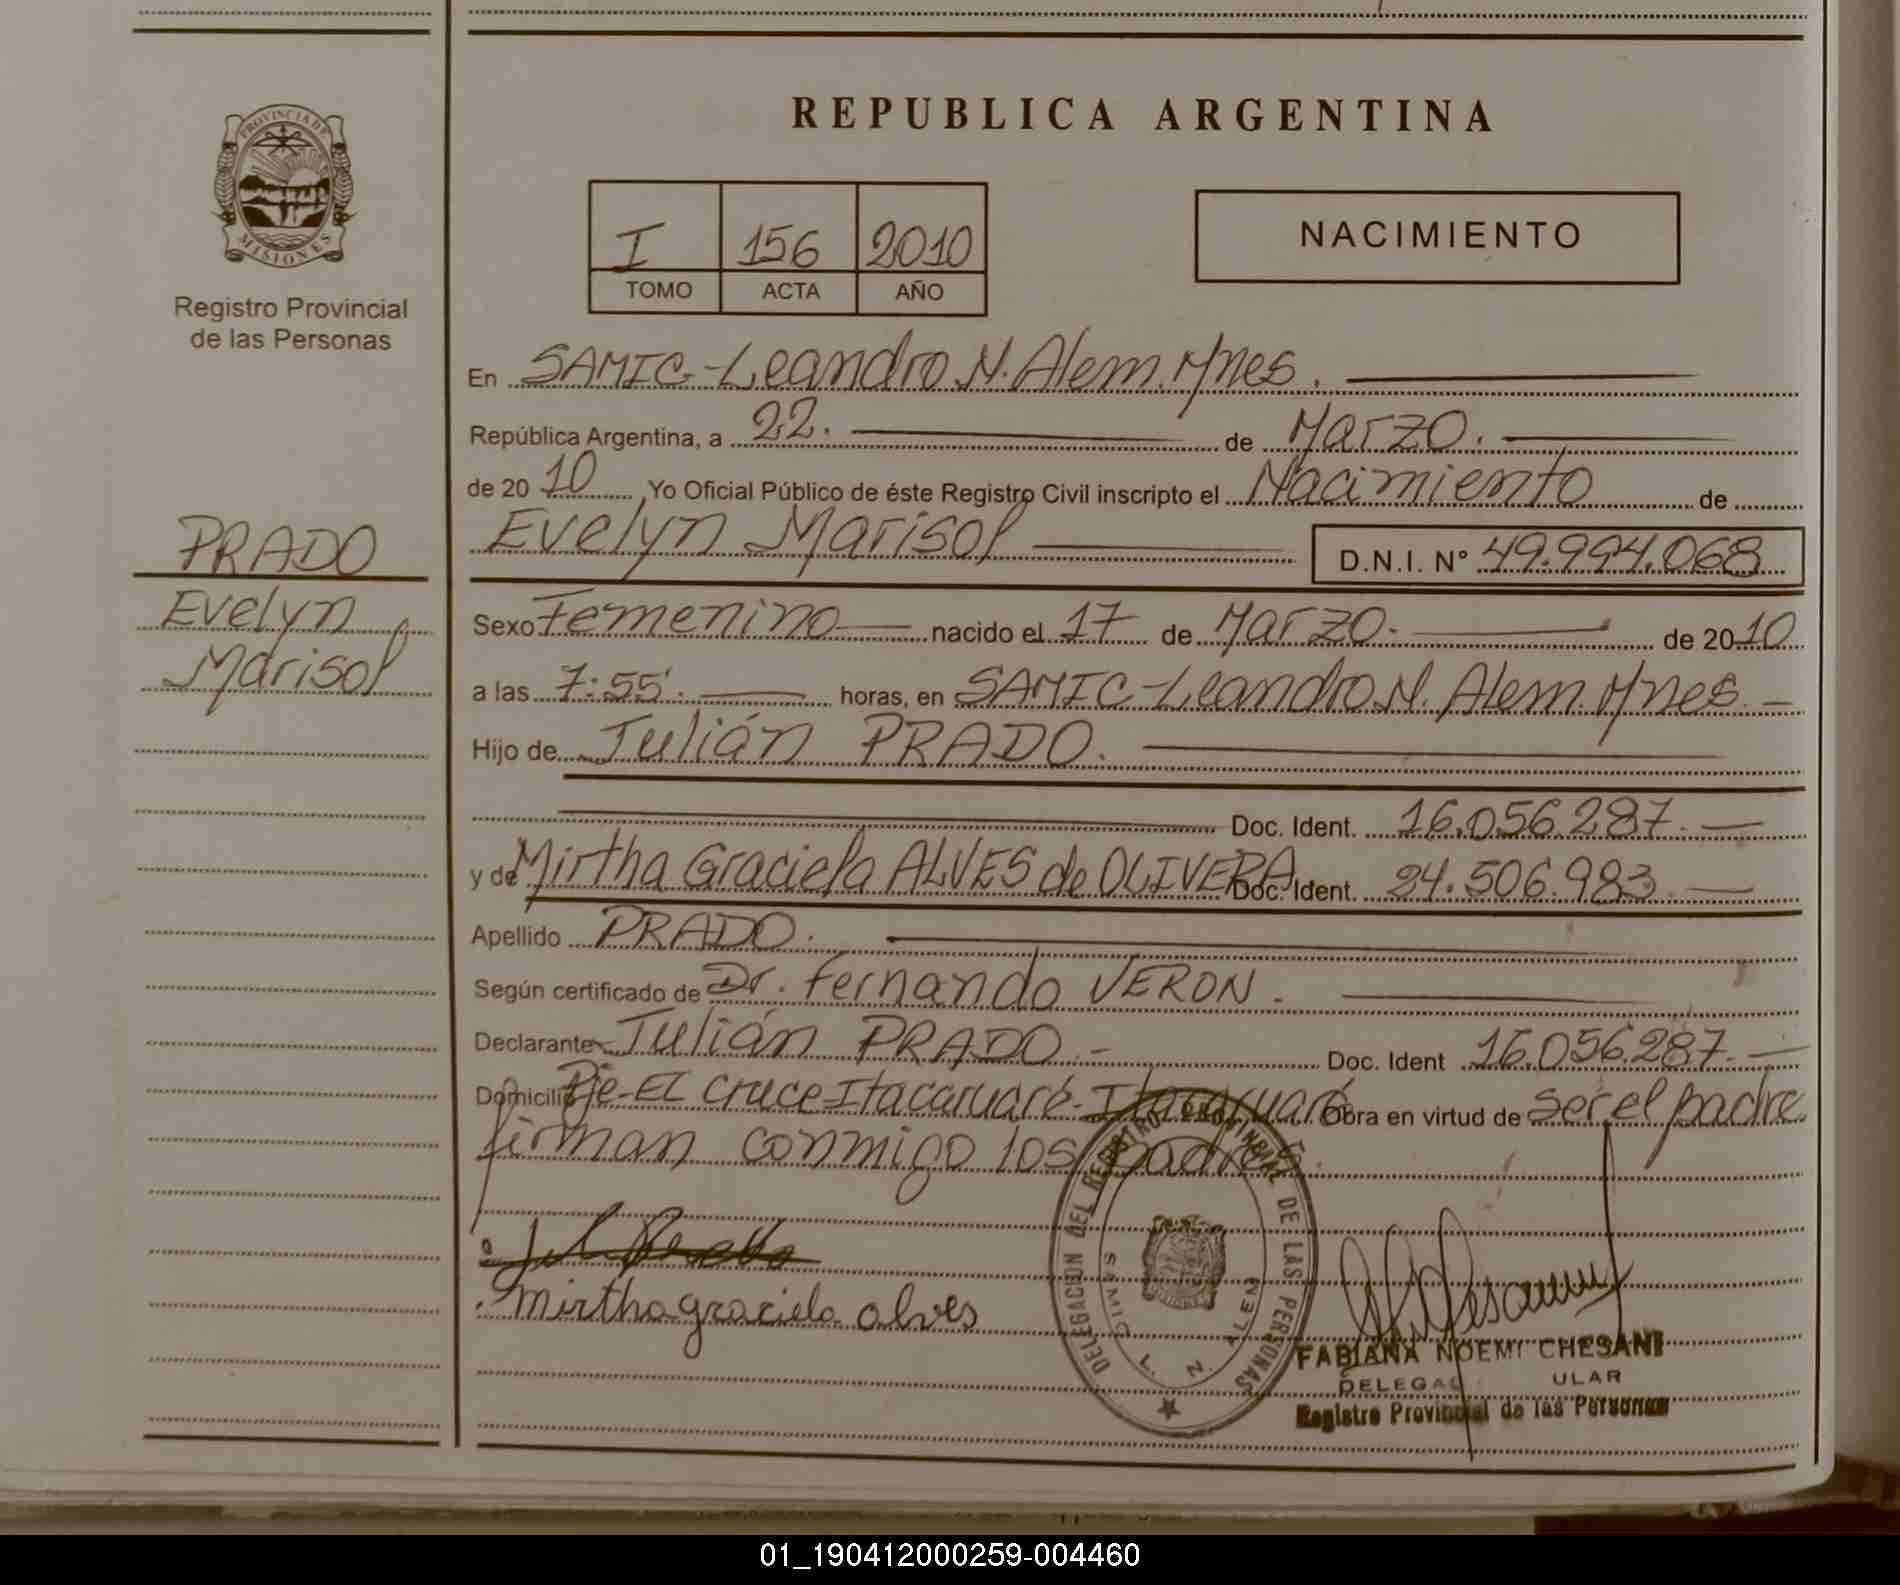 REPUBLICA ARGENTINA
PROVINCIA DE
MISIONES
Registro Provincial
de las Personas
I 156 2010
TOMO ACTA AÑO
NACIMIENTO
En SAMIC-Leandro N. Alem. Mnes.
República Argentina, a 22. de Marzo.
de 2010 Yo Oficial Público de éste Registro Civil inscripto el Nacimiento de
Evelyn Marisol D.N.I. N° 49.994.068
PRADO
Evelyn
Marisol
Sexo Femenino nacido el 17 de Marzo. de 2010
a las 7:55. horas, en SAMIC-Leandro N. Alem. Mnes.
Hijo de Julián PRADO.
Doc. Ident. 16.056.287.
y de Mirtha Graciela ALVES de OLIVERA Doc. Ident. 24.506.983.
Apellido PRADO.
Según certificado de Dr. Fernando VERON.
Declarante Julián PRADO.- Doc. Ident 16.056.287.
Domicilio Pje-El Cruce Itacaruaré-Itacaruaré Obra en virtud de ser el padre
firman conmigo los padres.
mirtha graciela alves
DELEGACION DEL REGISTRO PROVINCIAL DE LAS PERSONAS
SAMIC L. N. ALEM
FABIANA NOEMI CHESANI
Registro Provincial de las Personas
01_190412000259-004460